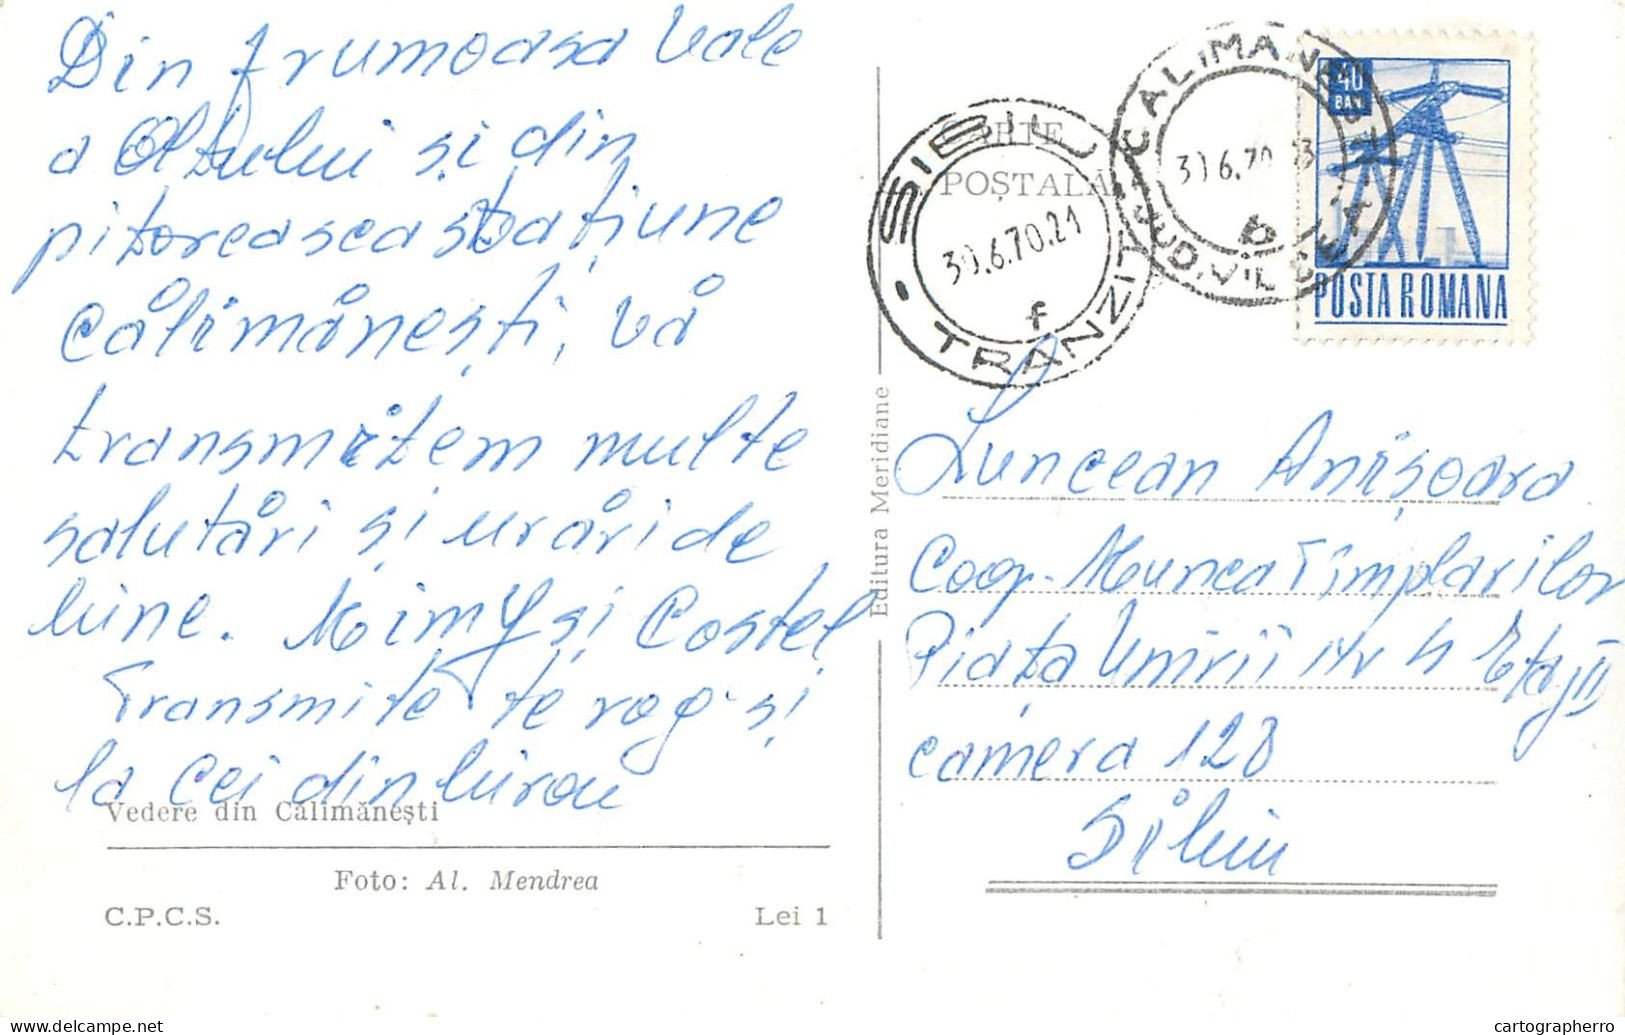 Din frumoasa Vale
a Oltului și din
pitoreasca stațiune
Călimănești, vă
transmitem multe
salutări și urări de
bine. Mimy și Costel
Transmite te rog și
la cei din birou
Vedere din Călimănești
Foto: Al. Mendrea
C.P.C.S.
Lei 1
Editura Meridiane
CARTE
POȘTALĂ
SIBIU
30.6.70.21
f
TRANZIT
CALIMANEȘTI
30.6.70
b
JUD. VILCEA
40
BANI
POSTA ROMANA
Luncean Anișoara
Coop. Munca Tîmplarilor
Piața Unirii Nr 4 Etaj II
camera 128
Sibiu
delcampe.net
cartographerro